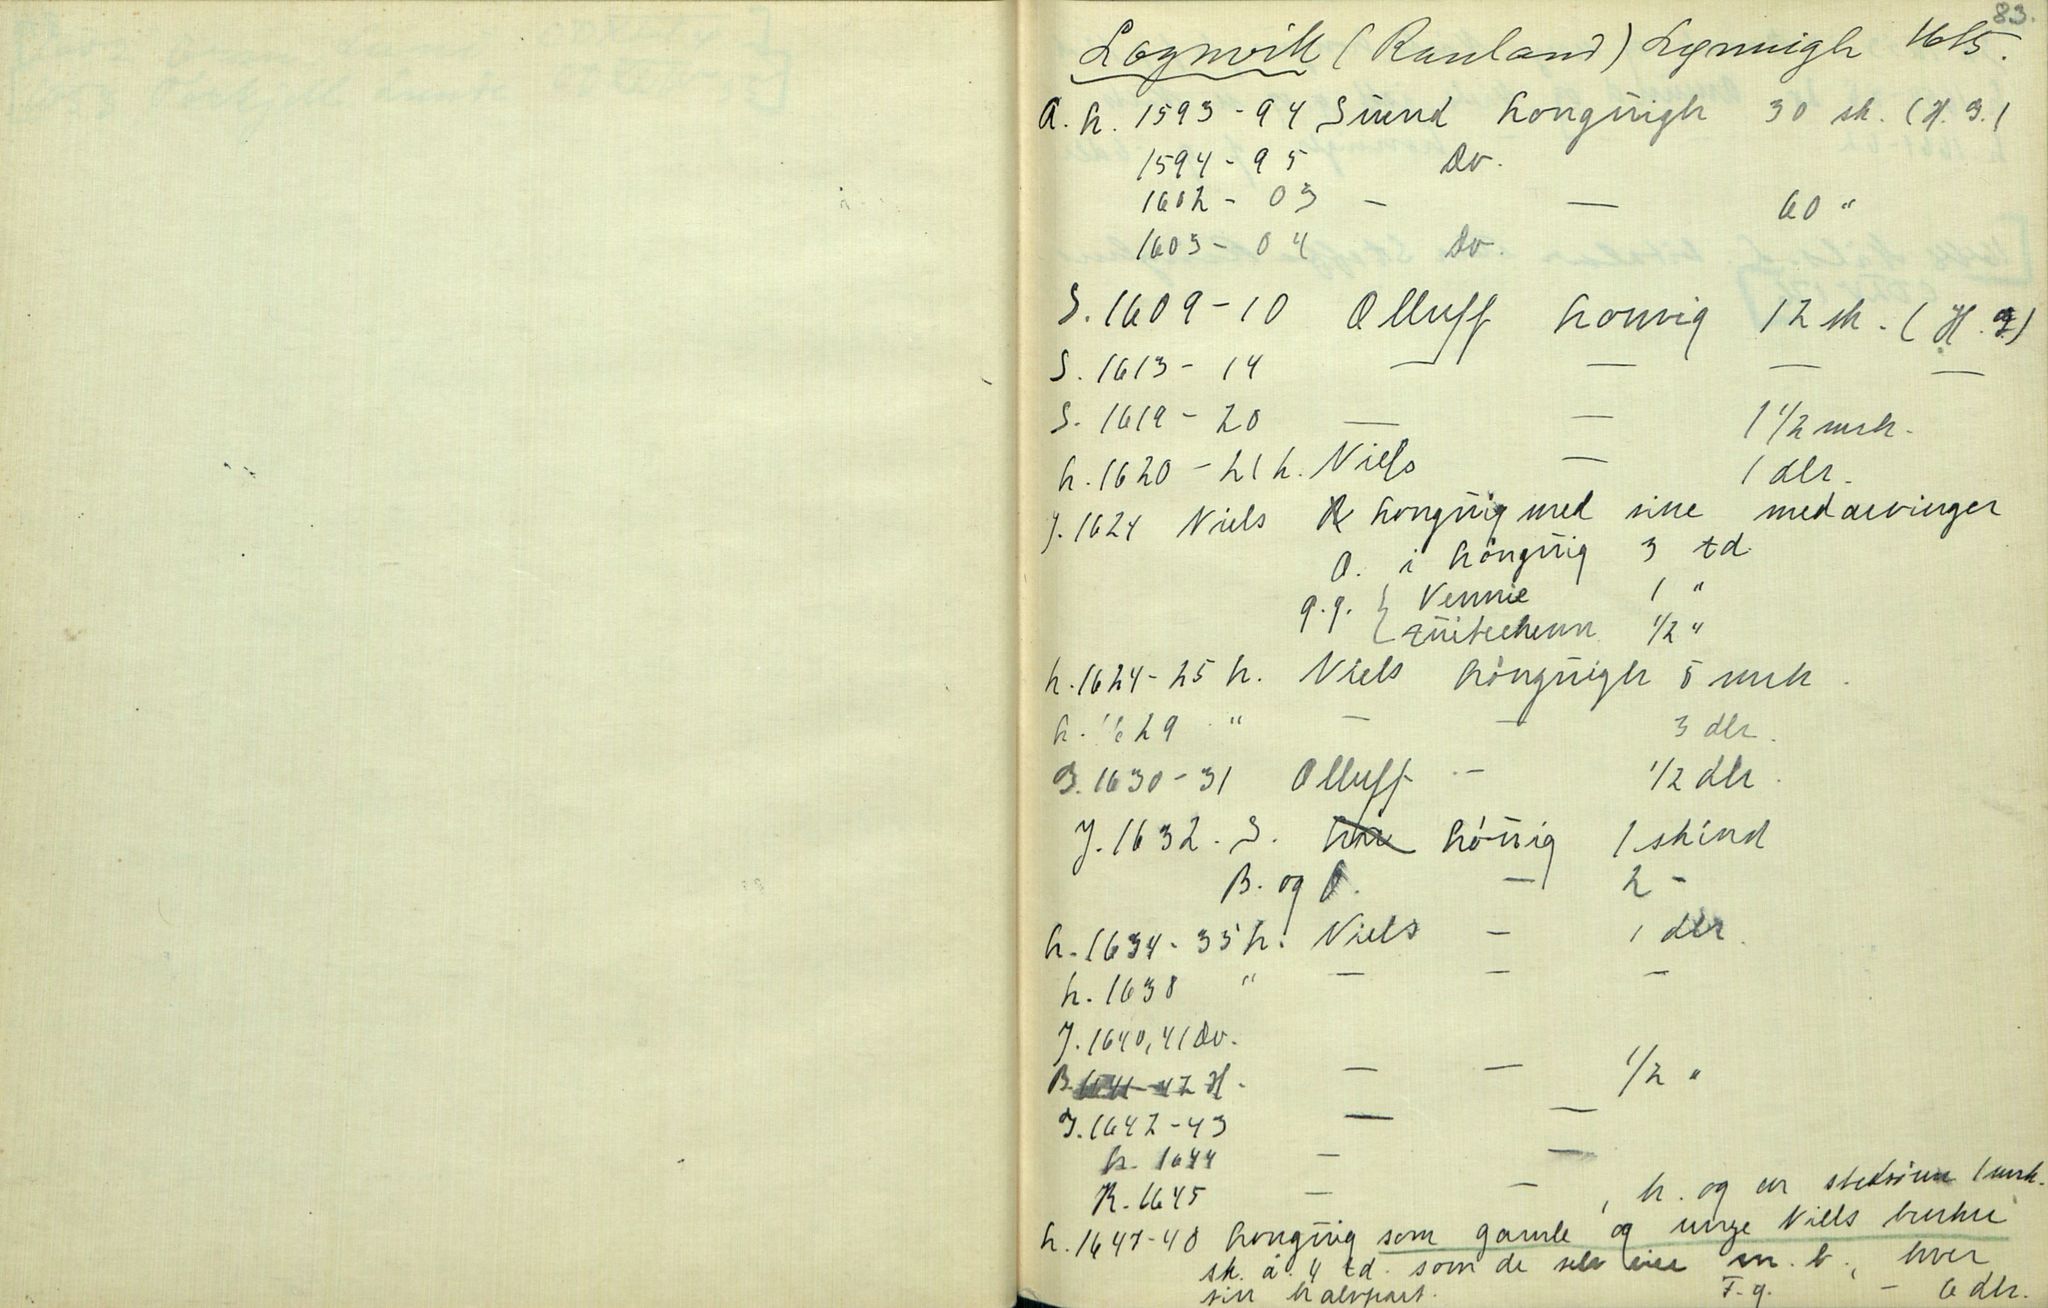 83.
Lognvik (Rauland) Lognuigh 1665.
A. h. 1593-94 Siund Longuigh 30 sk. (H. 3.)
1594-95 Do.
1602-03 — — 60 "
1603-04 Do.
S. 1609-10 Olluff Lonvig 12 sk. (H. )
S. 1613-14 — — — —
S. 1619-20 — — 1 1/2 mrk.
h. 1620-21 h. Niels — 1 dlr.
J. 1624 Niels Longuig med sine medarvinger
O. i Longuig 3 td.
q.g. { Vennie 1 "
1/2 "
h. 1624-25 h. Niels Longuigh 5 mrk.
h. 1629 " — — 3 dlr.
3. 1630-31 Olluff — 1/2 dlr.
J. 1632. S. Lóuig 1 skind
B. og O. — 2 -
h. 1634-35 h. Niels — 1 dlr.
h. 1638 " — — —
J. 1640, 41 Do.
B. 1641-42 H. — — 1/2 "
J. 1642-43 — —
h. 1644 — —
R. 1645 — — , h. og en stedsönn 1 mrk.
h. 1647-48 Longuig som gamle og unge Niels bruker
sk. á. 4 td. som de selv eier m. b., hver
sin halvpart. F. g. - 6 dlr.